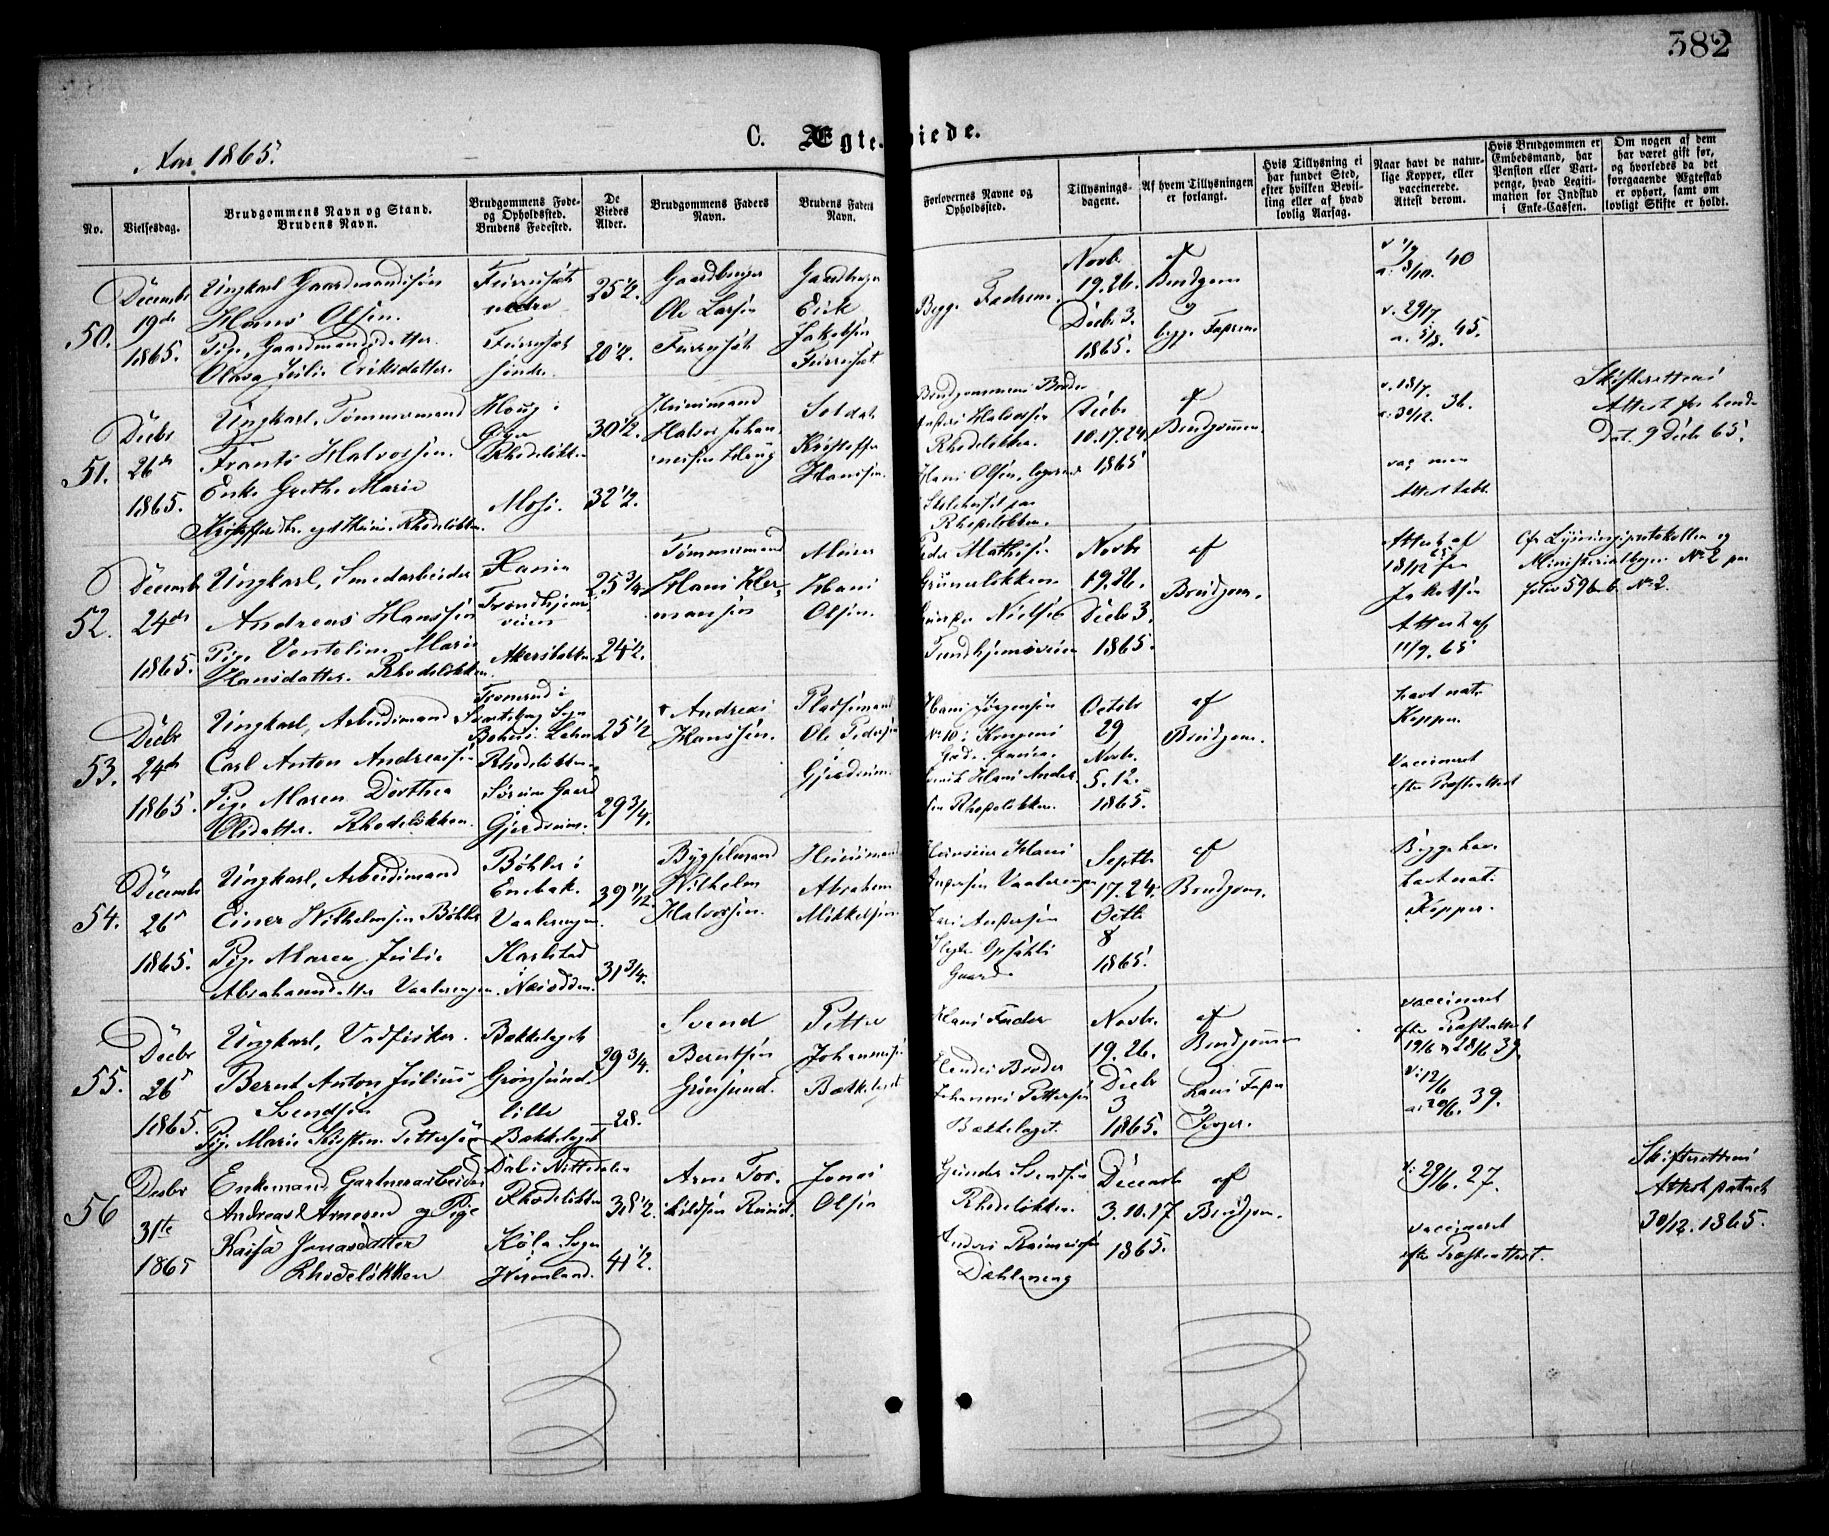 382
C. Ægteviede.
Aar 1865.
No.
Vielsesdag.
Brudgommens Navn og Stand.
Brudens Navn.
Brudgommens Føde-
og Opholdssted.
Brudens Fødested.
De
Viedes
Alder.
Brudgommens Faders
Navn.
Brudens Faders
Navn.
Forlovernes Navne og
Opholdssted.
Tillysnings-
dagene.
Af hvem Tillysningen
er forlangt.
Hvis Tillysning ei
har fundet Sted,
efter hvilken Bevil-
ling eller af hvad
lovlig Aarsag.
Naar havt de natur-
lige Kopper, eller
vaccinerede.
Attest derom.
Hvis Brudgommen er
Embedsmand, har
Pension eller Vart-
penge, hvad Legiti-
mation for Indskud
i Enke-Cassen.
Om nogen af dem
har været gift før,
og hvorledes da det
foregaaende Ægteskab
er ophørt, samt om
lovligt Skifte er holdt.
50.
Decembr
19de
1865.
Ungkarl Gaardmandssøn
Hans Olsen.
Pige, Gaardmandsdatter
Olava Julie Eriksdatter.
nedre
søndre
25 1/2.
20 1/2.
Gaardbruger
Ole Larsen
Gaardbruger
Erik
Jakobsen
Begge Fædrene.
Novbr
19. 26.
Decbr 3.
1865.
af
Brudgom
og
begge Fædrene
40
v. 29/7
a. 5/8. 45.
51.
Decbr
26de
1865.
Ungkarl, Tømmermand
Frants Halvorsen.
Enke Grethe Marie
Houg i
Rhodeløkken
Moss.
30 1/2.
32 1/2.
Huusmand
Halvor Johan-
nessen Houg
Soldat
Kristoffer
Hanssen.
Brudgommens Broder
Halvorsen
Rhodeløkken.
Hans Olsen, logerende
Rhodeløkken.
Decbr
10. 17. 24.
1865
af
Brudgommen.
v. 18/7
a: 30/12. 36.
Skifterettens
Attest for hende
dat. 9 Decbr 65.
52.
Decembr
24de
1865.
Ungkarl, Smedarbeider
Andreas Hanssen
Pige Venteline Marie
Hansdatter. Rhodeløkken.
Trondhjems-
veien
Akersbakken
25 3/4
24 1/2.
Tømmermand
Hans Her-
mansen
Murer
Hans
Olsen.
Peder Mathisen
Grünerløkken
Nielsen
Trondhjemsveien
Novbr
19. 26.
Decbr 3.
1865.
af
Brudgom.
Attest af
18/12 fra
Jakobsen
Attest af
11/9. 65
Cfr Lysningsprotokollen og
Ministerialbogen No 2 pag
folio 596 b No 2.
53.
Decbr
24de
1865.
Ungkarl, Arbeidsmand
Carl Anton Andreassen
Pige Maren Dorthea
Olsdatter. Rhodeløkken.
Rhodeløkken.
Gaard
Gjerdrum.
25 1/2
29 3/4.
Andreas
Hanssen.
Pladsemand
Ole Pedersen
Gjerdrum.
Hans Jørgensen
No 10 i Kongens
Hans Anders-
sen Rhodeløkken.
Octobr
29
Novbr.
5. 12.
1865.
af
Brudgom.
havt nat.
Kopper.
Vaccineret
efter Præsteattest
54.
Decembr
26de
1865.
Ungkarl, Arbeidsmand
Einer Wilhelmsen Bøhler
Pige Maren Julie
Abrahamsdatter Vaalerengen.
Bøhler i
Enebak.
Vaalerengen.
Karlstad
Næsodden.
39 11/12
31 3/4.
Bygselmand
Wilhelm
Halvorsen.
Huusmand
Abraham
Mikkelsen
Hans
Andersen Vaalerengen
Andersen
Opsahl
Gaard
Septbr
17. 24.
Octbr
8
1865.
af
Brudgom.
Begge have
havt nat.
Kopper.
55.
Decbr
26de
1865.
Ungkarl, Vadfisker.
Bernt Anton Julius
Svendsen
Pige Marie Kirstine Pettersen
Bækkelaget
Grønsund
lille
Bækkelaget
29 3/4.
28.
Svend
Berntsen
Grønsund.
Petter
Johannessen
Bækkelaget
Hans Fader
Hendes Broder
Johannes Pettersen
Bækkelaget.
Novbr.
19. 26.
Decbr
3
1865.
af
Brudgommen
hans Fader
vaccineret
efter Præsteattest
v: 12/6
a: 20/6. 39.
56
Decbr
31te
1865
Enkemand Gartnerarbeider
Andreas Arnesen og Pige
Kaisa Jonasdatter
Rhodeløkken
Dal i Nittedalen
Rhodeløkken
Køla Sogn
Wermland.
38 1/2.
41 1/2.
Arne Tor-
Jonas
Olsen
Gunder Svendsen
Rhodeløkken.
Anders
Dæhleneng
Decembr
3. 10. 17
1865.
af
Brudgom.
v: 29/6. 27.
vaccineret
efter Præsteattest.
Skifterettens
Attest
30/12. 1865.